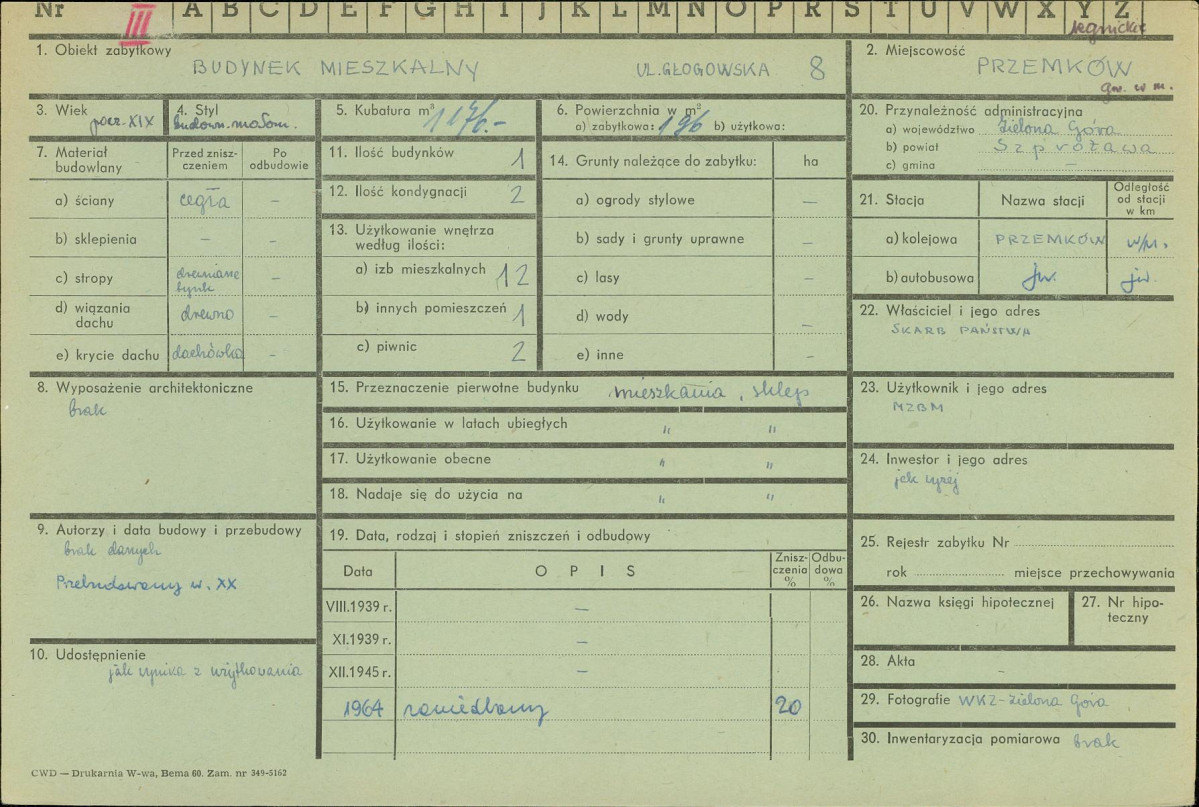 Nr III A B C D E F G H I J K L M N O P R S T U V W X Y Z
legnickie
1. Obiekt zabytkowy
BUDYNEK MIESZKALNY UL. GŁOGOWSKA 8
2. Miejscowość
PRZEMKÓW
gm. w m.
3. Wiek
pocz. XIX
4. Styl
budown. małom.
5. Kubatura m³
1176.-
6. Powierzchnia w m²
a) zabytkowa: 196 b) użytkowa:
20. Przynależność administracyjna
a) województwo Zielona Góra
b) powiat Szprotawa
c) gmina —
7. Materiał budowlany
Przed zniszczeniem
Po odbudowie
a) ściany cegła –
b) sklepienia – –
c) stropy drewniane –
d) wiązania dachu drewno –
e) krycie dachu dachówka –
11. Ilość budynków 1
12. Ilość kondygnacji 2
13. Użytkowanie wnętrza
według ilości:
a) izb mieszkalnych 12
b) innych pomieszczeń 1
c) piwnic 2
14. Grunty należące do zabytku: ha
a) ogrody stylowe —
b) sady i grunty uprawne —
c) lasy —
d) wody —
e) inne —
21. Stacja
Nazwa stacji
Odległość
od stacji
w km
a) kolejowa PRZEMKÓW w/m.
b) autobusowa jw. jw.
22. Właściciel i jego adres
SKARB PAŃSTWA
8. Wyposażenie architektoniczne
brak
15. Przeznaczenie pierwotne budynku mieszkania, sklep
16. Użytkowanie w latach ubiegłych " "
17. Użytkowanie obecne " "
18. Nadaje się do użycia na " "
23. Użytkownik i jego adres
MZBM
24. Inwestor i jego adres
jak wyżej
9. Autorzy i data budowy i przebudowy
brak danych
Przebudowany w. XX
19. Data, rodzaj i stopień zniszczeń i odbudowy
Data
OPIS
Zniszczenia %
Odbudowa %
VIII.1939 r. —
XI.1939 r. —
XII.1945 r. —
1964 zaniedbany 20
25. Rejestr zabytku Nr
rok miejsce przechowywania
26. Nazwa księgi hipotecznej
27. Nr hipoteczny
10. Udostępnienie
jak wynika z użytkowania
28. Akta –
29. Fotografie WKZ-Zielona Góra
30. Inwentaryzacja pomiarowa brak
CWD — Drukarnia W-wa, Bema 60. Zam. nr 349-5162